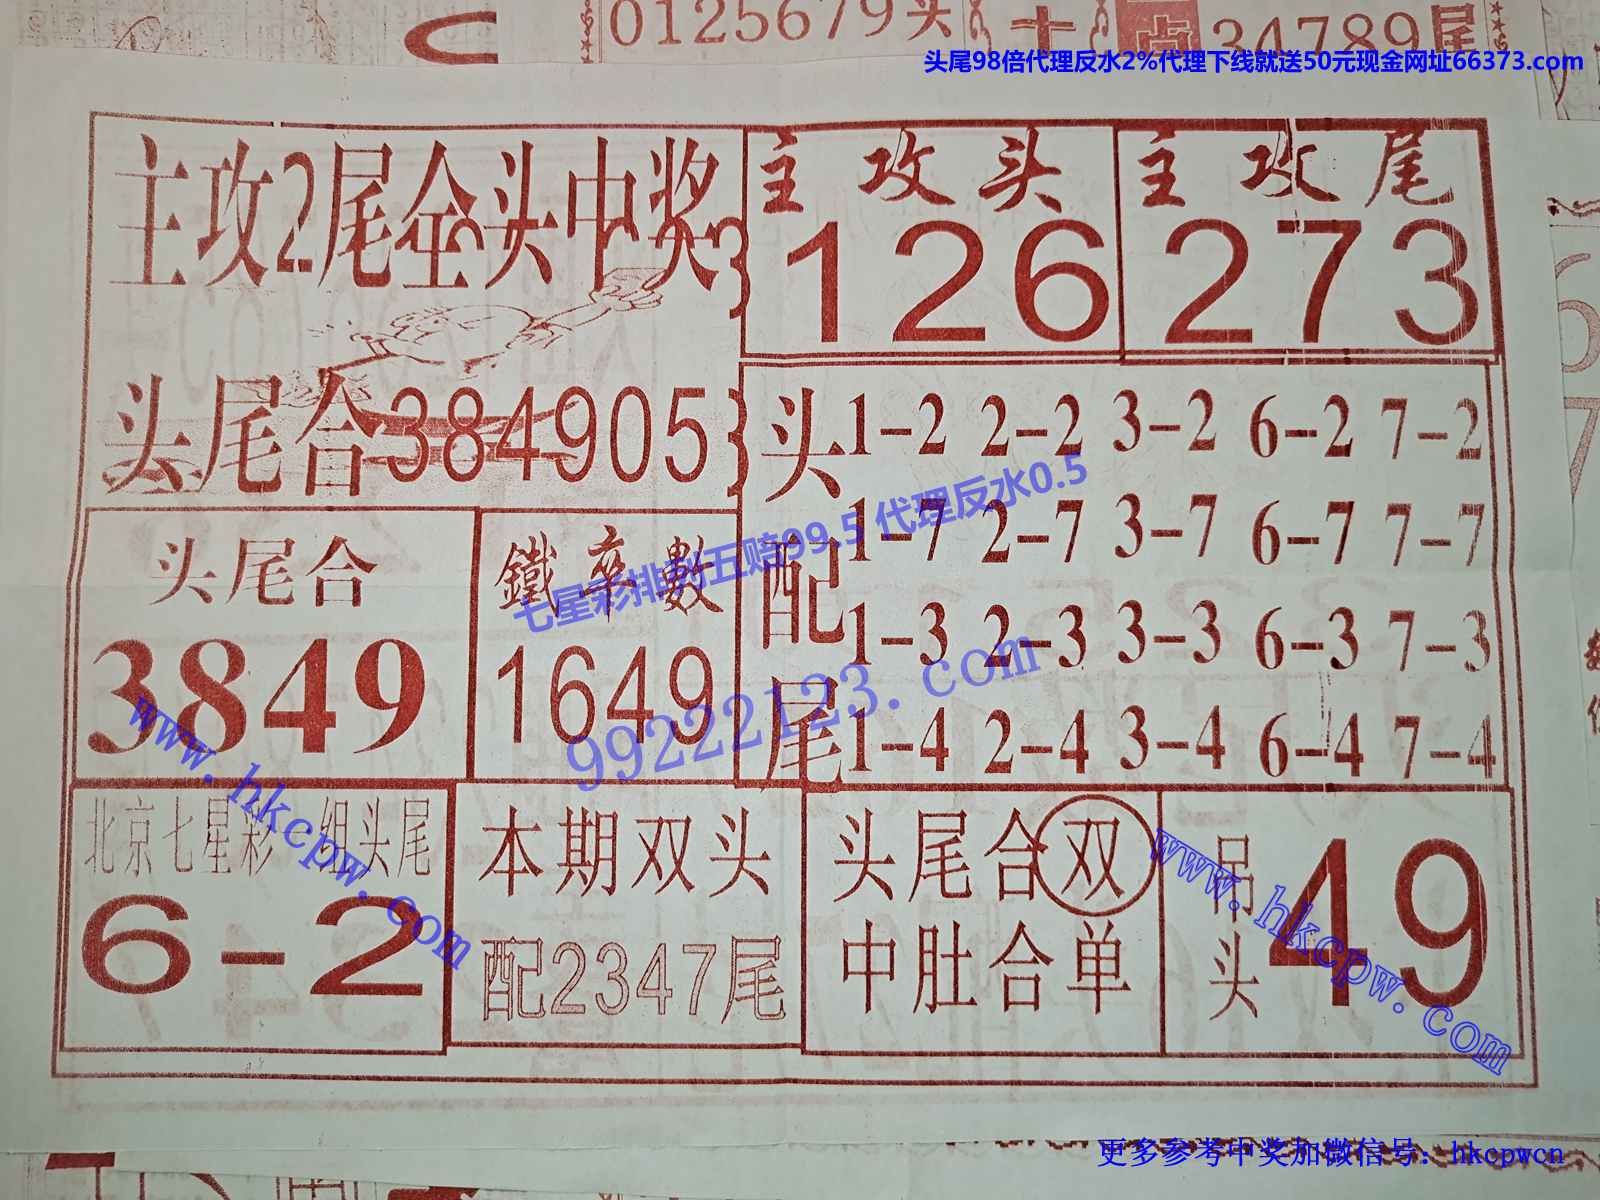 0125679头
34789尾
头尾98倍代理反水2%代理下线就送50元现金网址66373.com
主攻2尾全头中奖
主攻头
126
主攻尾
273
头尾合384905
头配尾
1-2 2-2 3-2 6-2 7-2
1-7 2-7 3-7 6-7 7-7
1-3 2-3 3-3 6-3 7-3
1-4 2-4 3-4 6-4 7-4
头尾合
3849
鐵率數
1649
七星彩排列五赔99.5 代理反水0.5
99222123.com
www.hkcpw.com
北京七星彩一组头尾
6-2
本期双头
配2347尾
头尾合双
中肚合单
吊头
49
www.hkcpw.com
更多参考中奖加微信号：hkcpwcn